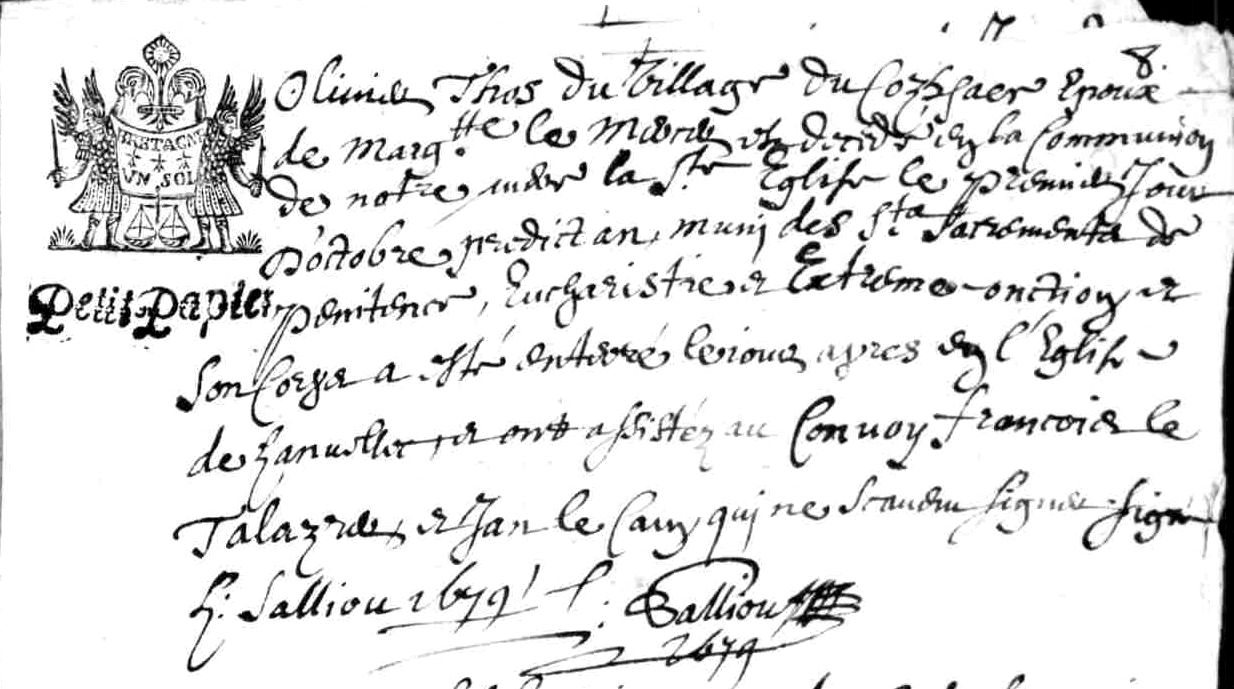 8.
BRETAGNE
UN SOL
Petit Papier
Olivier Thos du village du Cozkaer Epoux
de Marg.tte le Mercier est decedé en la Communion
de notre mere la Ste Eglise le premier Jour
D'octobre predict an, muny des Sts Sacrements de
penitence, Eucharistie et Extreme-onction et
Son Corps a esté enterré le iour apres en l'Eglise
de Lanvellec, et ont assistéz au Convoy francois le
Talazrer et Jan le Cam qui ne scavent signer sign
Salliou 1679
Salliou
1679